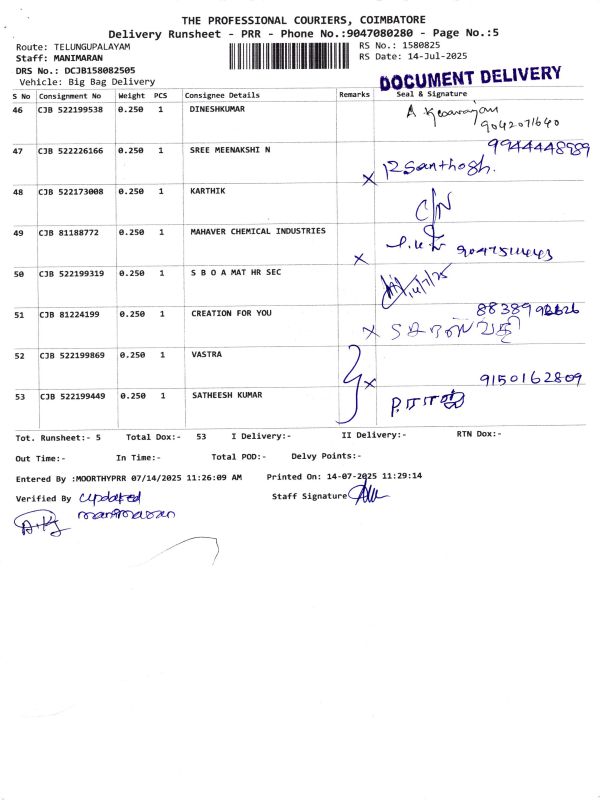 THE PROFESSIONAL COURIERS, COIMBATORE
Delivery Runsheet - PRR - Phone No.:9047080280 - Page No.:5
Route: TELUNGUPALAYAM RS No.: 1580825
Staff: MANIMARAN RS Date: 14-Jul-2025
DRS No.: DCJB158082505
Vehicle: Big Bag Delivery
DOCUMENT DELIVERY
S No Consignment No Weight PCS Consignee Details Remarks Seal & Signature
46 CJB 522199538 0.250 1 DINESHKUMAR
9042071640
47 CJB 522226166 0.250 1 SREE MEENAKSHI N 9944448989
x Santhosh.
48 CJB 522173008 0.250 1 KARTHIK
C/N
49 CJB 81188772 0.250 1 MAHAVER CHEMICAL INDUSTRIES
x
50 CJB 522199319 0.250 1 S B O A MAT HR SEC
14/7/25
51 CJB 81224199 0.250 1 CREATION FOR YOU
x
52 CJB 522199869 0.250 1 VASTRA
x 9150162809
53 CJB 522199449 0.250 1 SATHEESH KUMAR
Tot. Runsheet:- 5 Total Dox:- 53 I Delivery:- II Delivery:- RTN Dox:-
Out Time:- In Time:- Total POD:- Delvy Points:-
Entered By :MOORTHYPRR 07/14/2025 11:26:09 AM Printed On: 14-07-2025 11:29:14
Verified By updated Staff Signature
manimaran